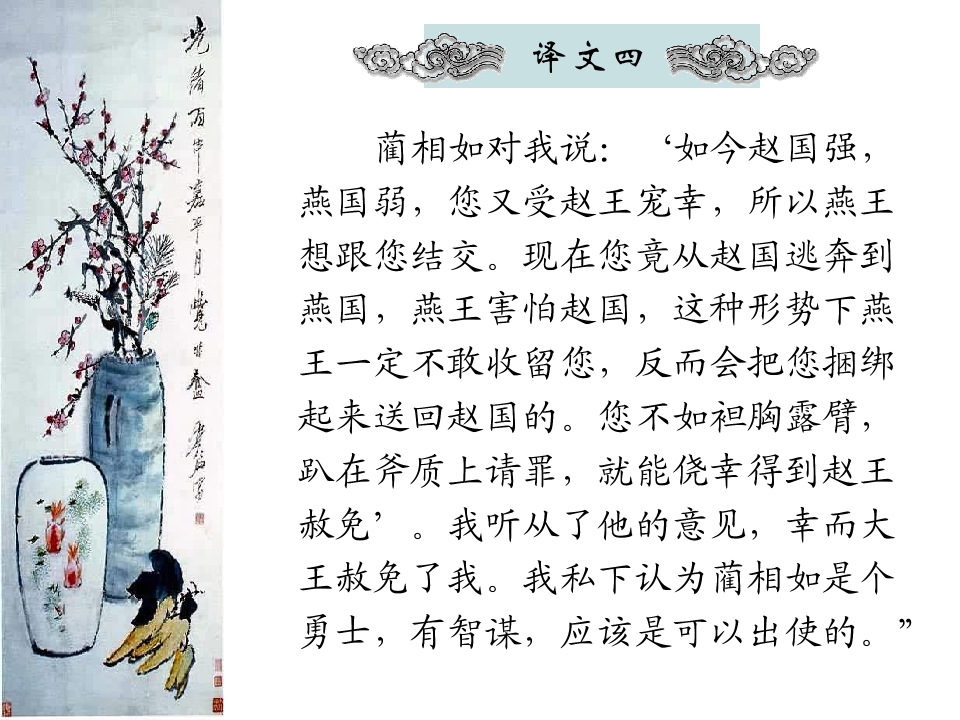 译文四
蔺相如对我说：‘如今赵国强，
燕国弱，您又受赵王宠幸，所以燕王
想跟您结交。现在您竟从赵国逃奔到
燕国，燕王害怕赵国，这种形势下燕
王一定不敢收留您，反而会把您捆绑
起来送回赵国的。您不如袒胸露臂，
趴在斧质上请罪，就能侥幸得到赵王
赦免’。我听从了他的意见，幸而大
王赦免了我。我私下认为蔺相如是个
勇士，有智谋，应该是可以出使的。”